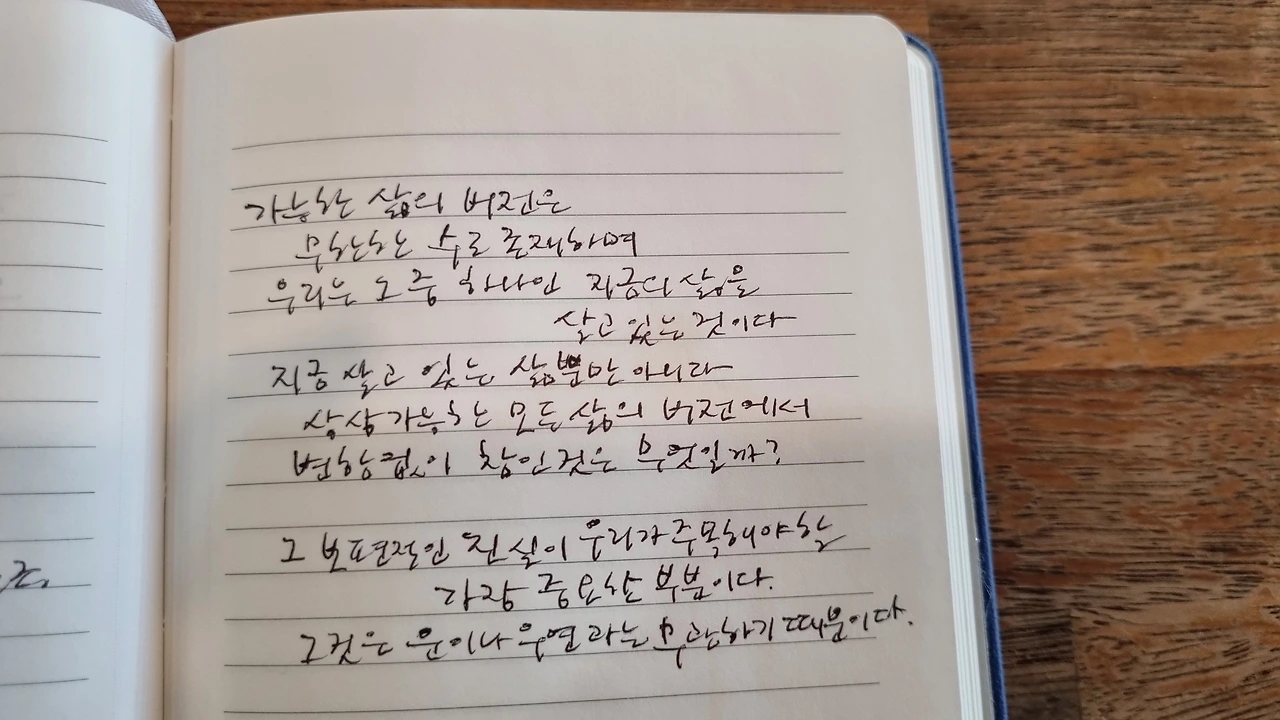 가능한 삶의 버전은
무한한 수로 존재하며
우리는 그 중 하나인 지금의 삶을
살고 있는 것이다
지금 살고 있는 삶뿐만 아니라
상상가능한 모든 삶의 버전에서
변함없이 참인 것은 무엇일까?
그 보편적인 진실이 우리가 주목해야 할
가장 중요한 부분이다.
그것은 운이나 우연과는 무관하기 때문이다.